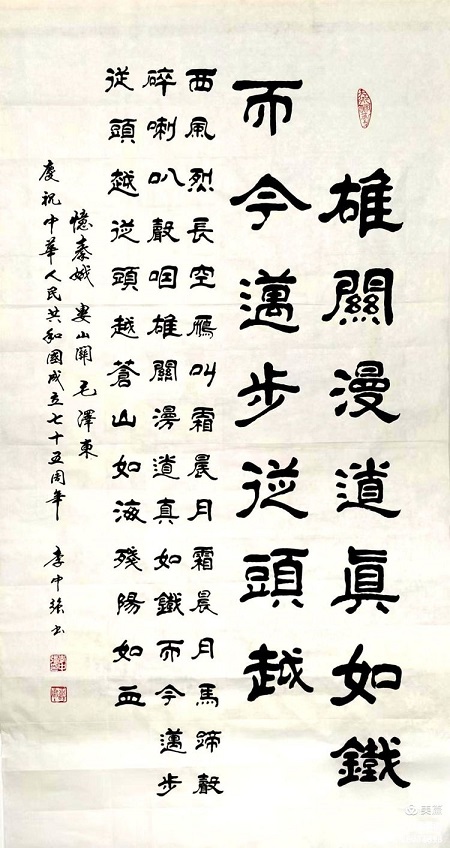 雄關漫道眞如鐵
而今邁步從頭越
西風烈長空鴈叫霜晨月霜晨月馬蹄聲
碎喇叭聲咽雄關漫道真如鐵而今邁步
從頭越從頭越蒼山如海殘陽如血
憶秦娥 婁山關 毛澤東
慶祝中華人民共和國成立七十五周年 李中 书
美篇